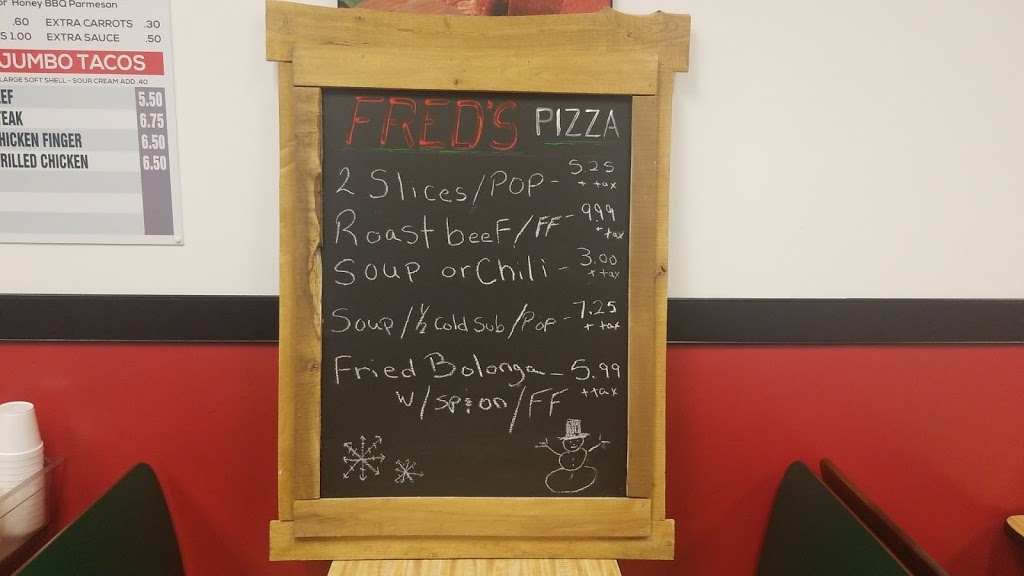 or Honey BBQ Parmesan
.60 EXTRA CARROTS .30
S 1.00 EXTRA SAUCE .50
JUMBO TACOS
LARGE SOFT SHELL - SOUR CREAM ADD .40
EF 5.50
TEAK 6.75
HICKEN FINGER 6.50
RILLED CHICKEN 6.50
FRED'S PIZZA
2 Slices/POP - 5.25 + tax
Roast beeF/FF - 9.99 + tax
Soup or Chili - 3.00 + tax
Soup/½ Cold Sub/Pop - 7.25 + tax
Fried Bolonga - 5.99 + tax
w/sp+on/FF